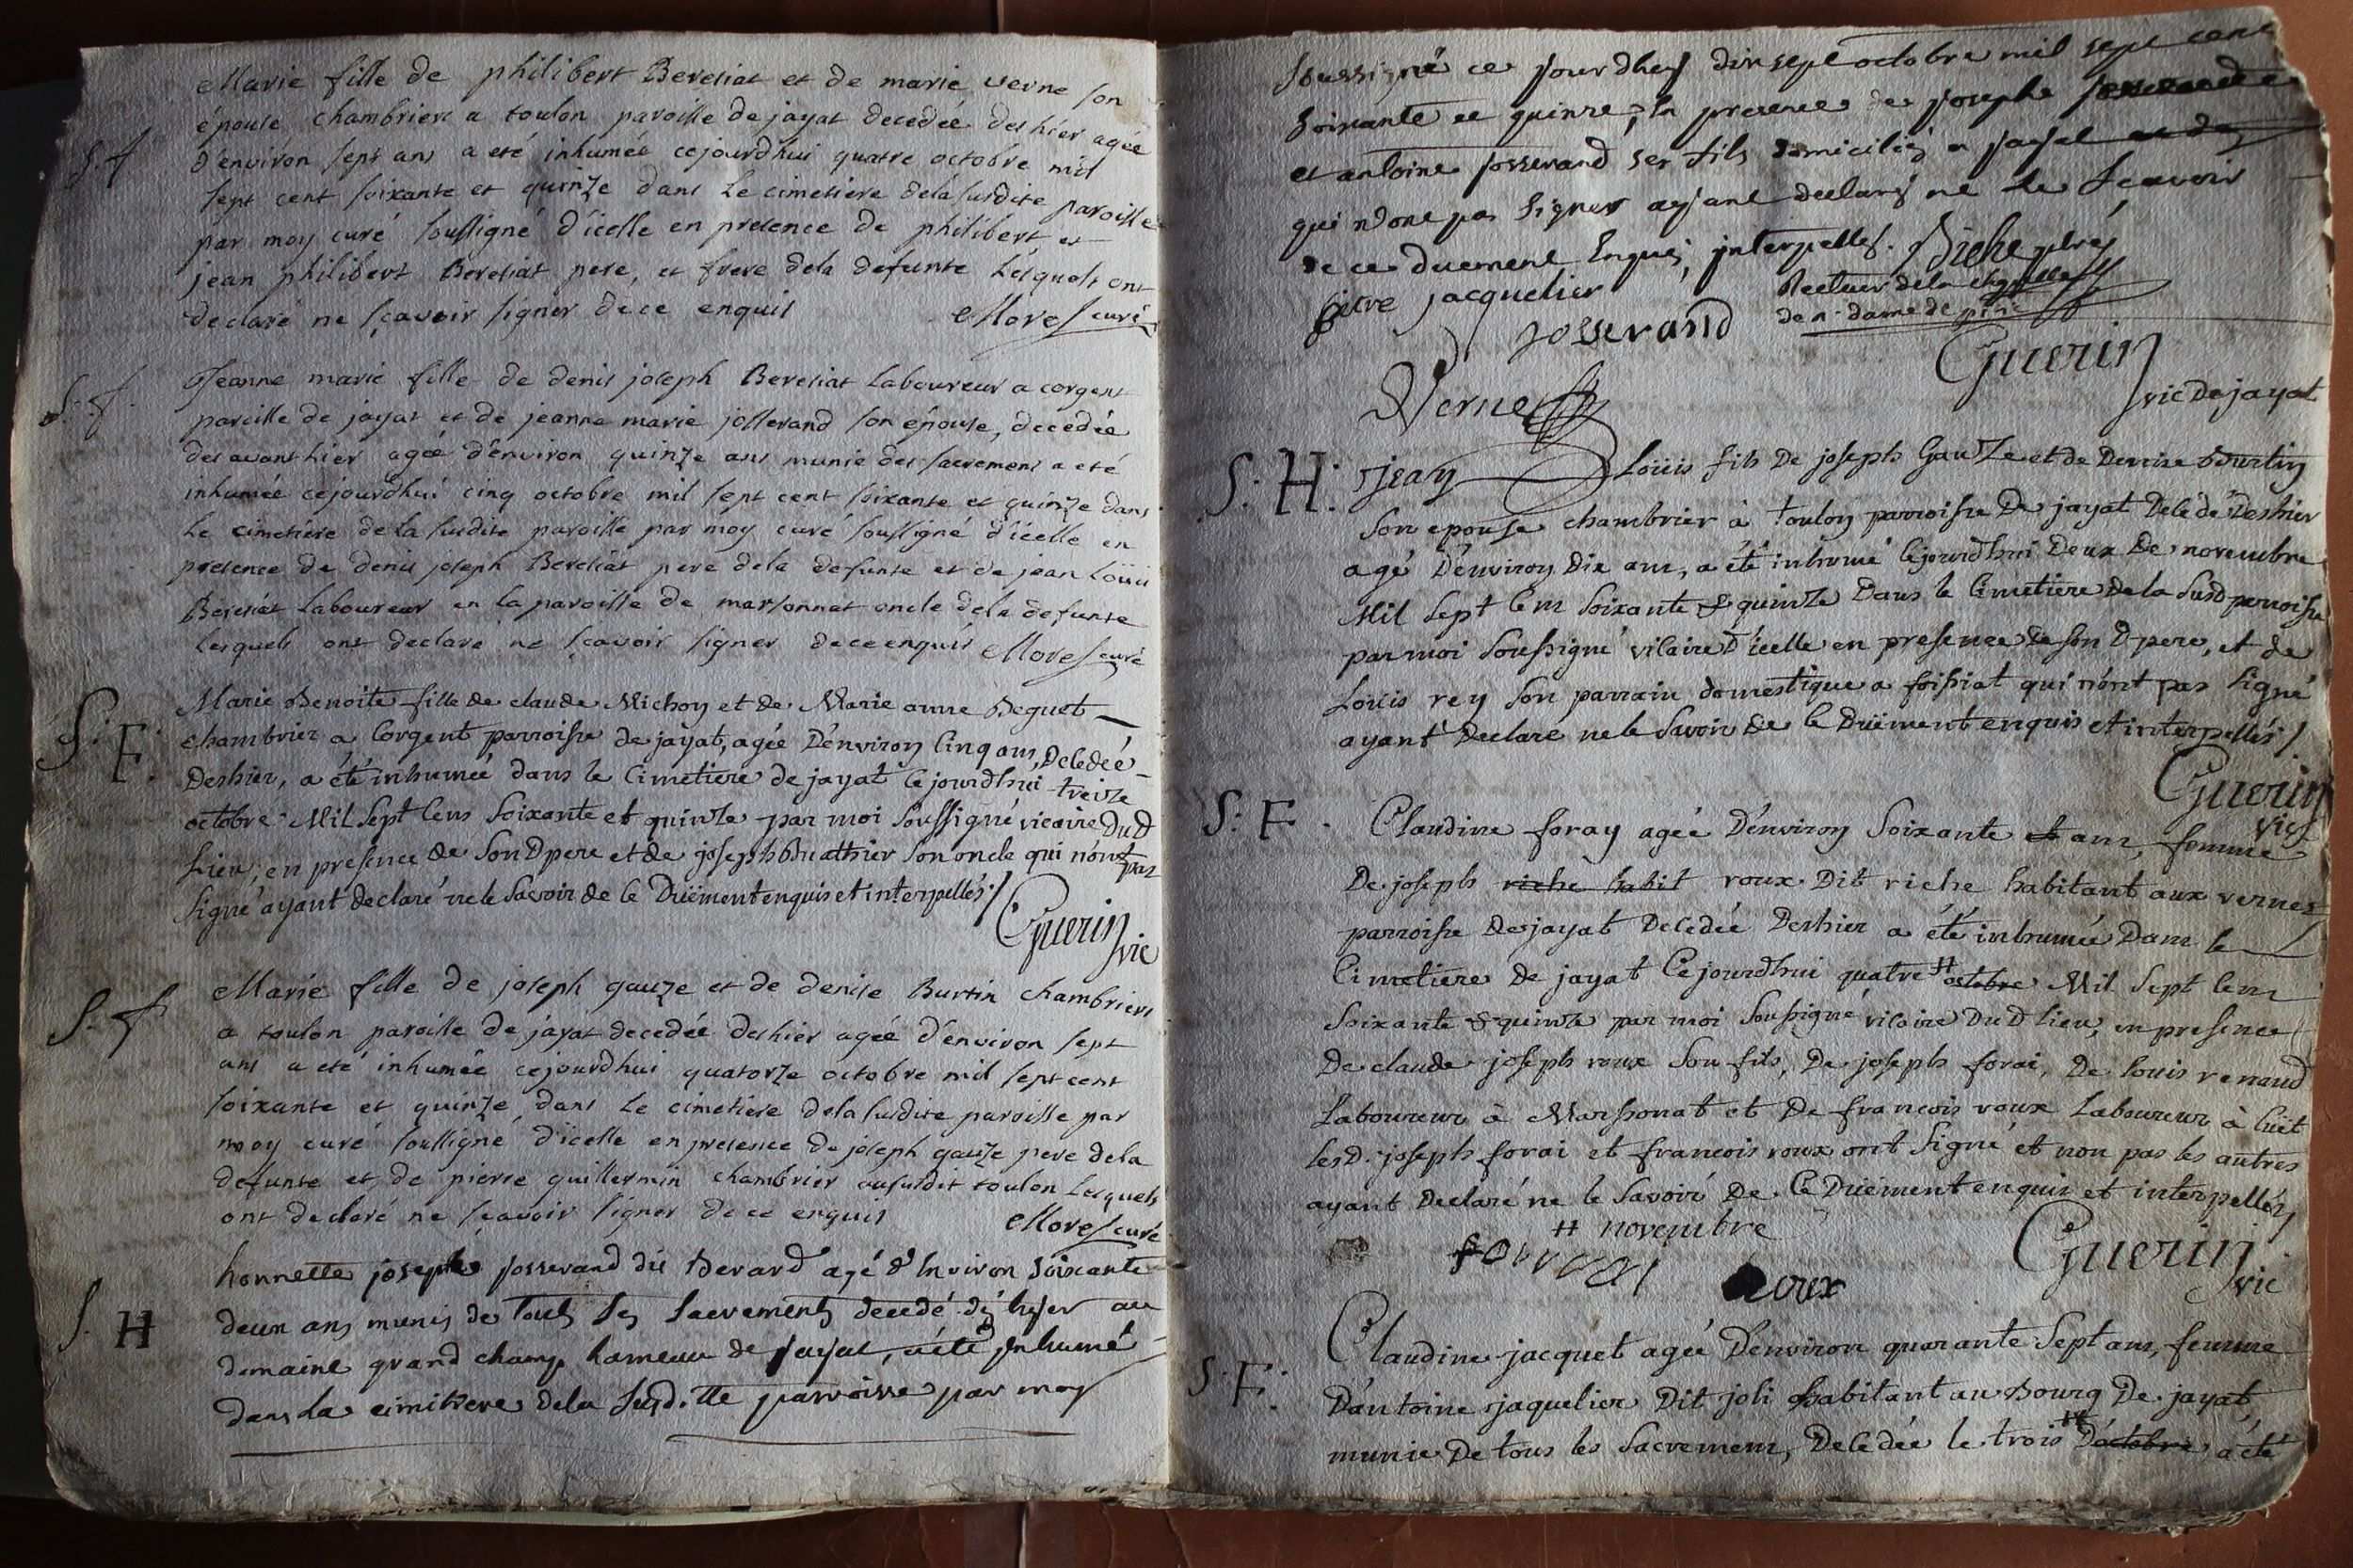 Marie fille de philibert Beresiat et de marie verne son
S. f
épouse chambriers a toulon paroisse de jayat decedée des hier agée
d'environ sept ans a eté inhumée cejourdhui quatre octobre mil
sept cent soixante et quinze dans Le cimetiere dela susdite paroisse
par moy curé soussigné d'icelle en presence de philibert et
jean philibert Beresiat pere, et frere dela defunte Lesquels ont
declaré ne sçavoir signer de ce enquis Mores curé
S. f.
Jeanne marie fille de denis joseph Beresiat Laboureur a corgent
paroisse de jayat et de jeanne marie josserand son épouse, decedée
des avant hier agée d'environ quinze ans munie des sacremens a eté
inhumée cejourdhui cinq octobre mil sept cent soixante et quinze dans
Le cimetiere de la susdite paroisse par moy curé soussigné d'icelle en
presence de denis joseph Beresiat pere dela defunte et de jean Loüis
Beresiat Laboureur en la paroisse de marsonnat oncle dela defunte
Lesquels ont declaré ne sçavoir signer de ce enquis Mores curé
S: F:
Marie Benoite fille de claude Michon et de Marie anne Beguet
chambrier a Corgent parroisse de jayat, agée D'environ Cinq ans, Decedeé
Deshier, a été inhumeé dans le Cimetiere de jayat Cejourdhui treize
octobre Mil Sept Cens Soixante et quinze par moi Soussigné vicaire Dud
Lieu; en presence de Son D pere et de joseph Buathier Son oncle qui n'ont pas
Signé ayant declaré ne le Savoir de Ce Düement enquis et interpellés /.
Guerin vic
S. f
Marie fille de joseph gauze et de denise Burtin chambriers
a toulon paroisse de jayat decedée deshier agée d'environ sept
ans a eté inhumée cejourdhui quatorze octobre mil sept cent
soixante et quinze dans Le cimetiere dela susdite paroisse par
moy curé soussigné d'icelle en presence de joseph gauze pere dela
defunte et de pierre guillermin chambrier ausudit toulon Lesquels
ont declaré ne sçavoir signer de ce enquis Mores curé
S. H
honnette joseph josserand dit Berard agé d'Environ soixante
deux ans munis de touts les sacrements decedé dés hyer au
domaine grand champ hameau de jayat, a été jnhumé
dans la cimitiere dela susd.tte parroisse par moy
soussigné ce jourdhuy dix sept octobre mil sept cent
soixante et quinze, En presence de joseph josserand
et antoine josserand ses fils domiciliés a jayat
qui n'ont pas signer ayant declaré ne le scavoir
de ce duement Enquis, jnterpellés. Riche ptre
Recteur dela chappelle
de n. dame de pitié
jacquelier
josserand
Guerin
vic De jayat
Verne
S: H:
jean Loüis fils De joseph Gauze et de Denise Burtin
Son epouse chambrier à toulon parroisse De jayat Decedé Deshier
agé D'environ Dix ans, a été inhumé Cejourdhui Deux De novembre
Mil Sept Cens Soixante & quinze Dans le Cimetiere De la Susd parroisse
par moi Soussigné vicaire D'icelle en presence de Son D pere, et de
Loüis rey Son parrain domestique a foissiat qui n'ont pas Signé
ayant Declaré ne le Savoir De Ce Düement enquis et interpellés /.
Guerin
vic
S: F.
Claudine foray ageé D'environ Soixante et ans, femme
De joseph riche habit roux Dit riche habitant aux vernes
parroisse De jayat Decedeé Deshier a été inhumée Dans le
Cimetiere De jayat Cejourdhui quatre # octobre Mil Sept Cens
Soixante & quinze par moi Soussigné vicaire Du D lieu, en presence
De claude joseph roux Son fils, De joseph forai, De louis renaud
Laboureur à Marssonat et De francois roux Laboureur à Cuet
Les D. joseph forai et francois roux ont Signé et non pas les autres
ayant Declaré ne le Savoir De Ce Düement enquis et interpellés
# novembre
roux
Guerin
vic
S. F:
Claudine jacquet agée D'environ quarante Sept ans, femme
D'antoine jaquelier Dit joli habitant au Bourg De jayat,
munie De tous les Sacremens, Decedée le trois # D'octobre a été